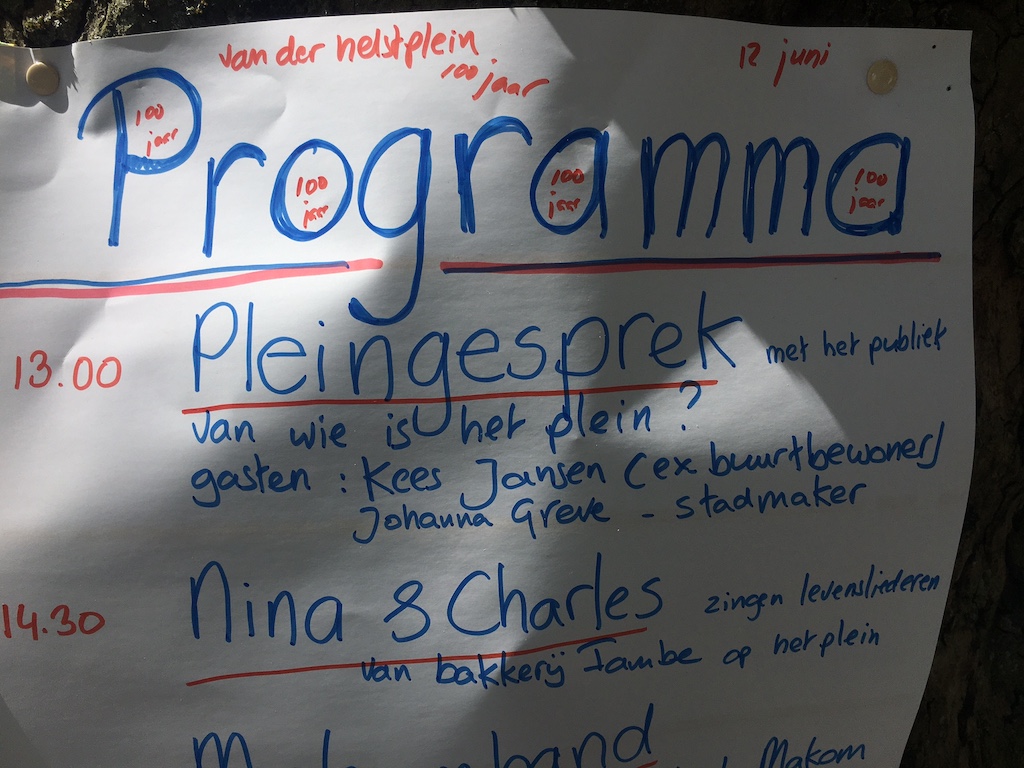 van der helstplein
100 jaar
12 juni
Programma
100
jaar
100
jaar
100
jaar
100
jaar
13.00 Pleingesprek met het publiek
van wie is het plein?
gasten: Kees Jansen (ex buurtbewoner)
Johanna Greve - stadmaker
14.30 Nina & Charles zingen levensliederen
van bakkerij Tambe op het plein
band
Makom